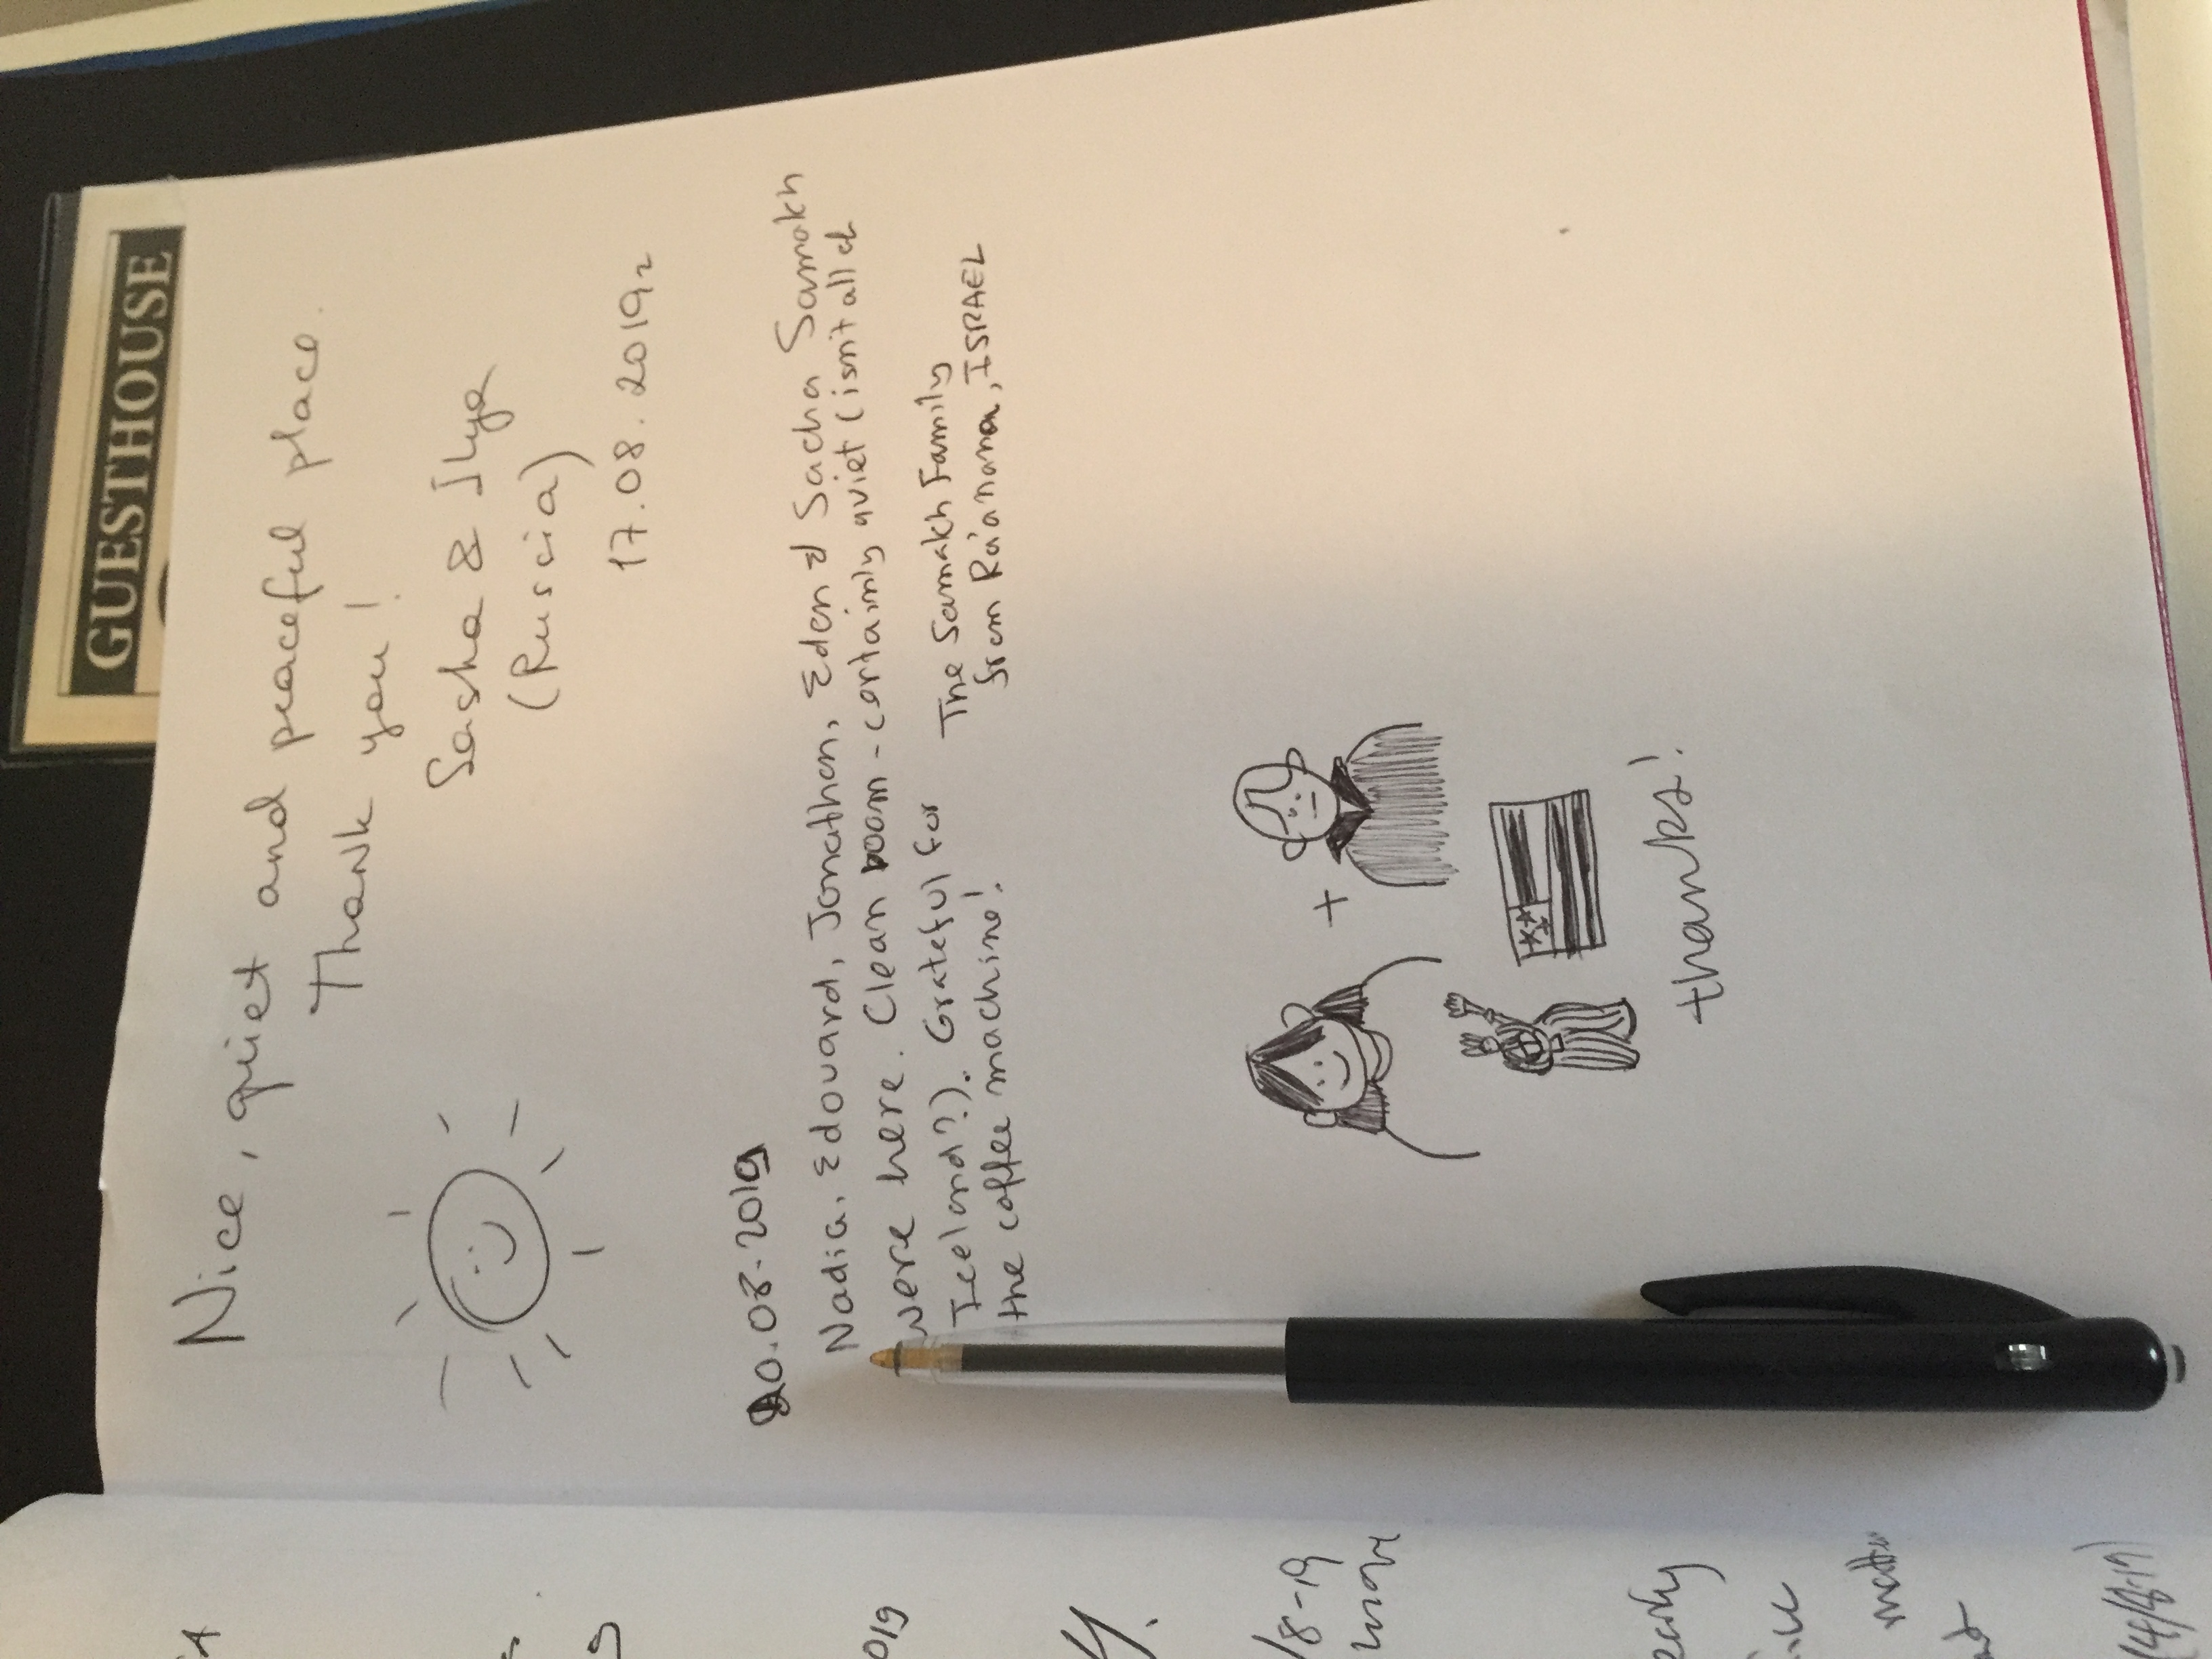 GUESTHOUSE
Nice, quiet and peaceful place.
Thank you!
Sasha & Ilya
(Russia)
17.08.2019г
20.08.2019
Nadia, Edouard, Jonathan, Eden & Sacha Samakh
were here. Clean room - certainly quiet (isn't all of
Iceland?). Grateful for
the coffee machine!
The Samakh Family
from Ra'anana, ISRAEL
+
thanks!
019
/8-19
more
matter
(4/8-19)